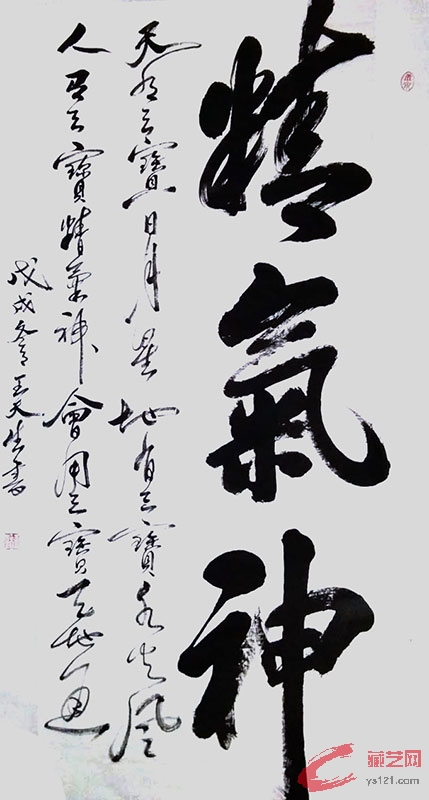 精氣神
天有三寶日月星地有三寶水火風
人有三寶精氣神會用三寶天地通
戊戌冬月王天生書
藏艺网
ys121.com